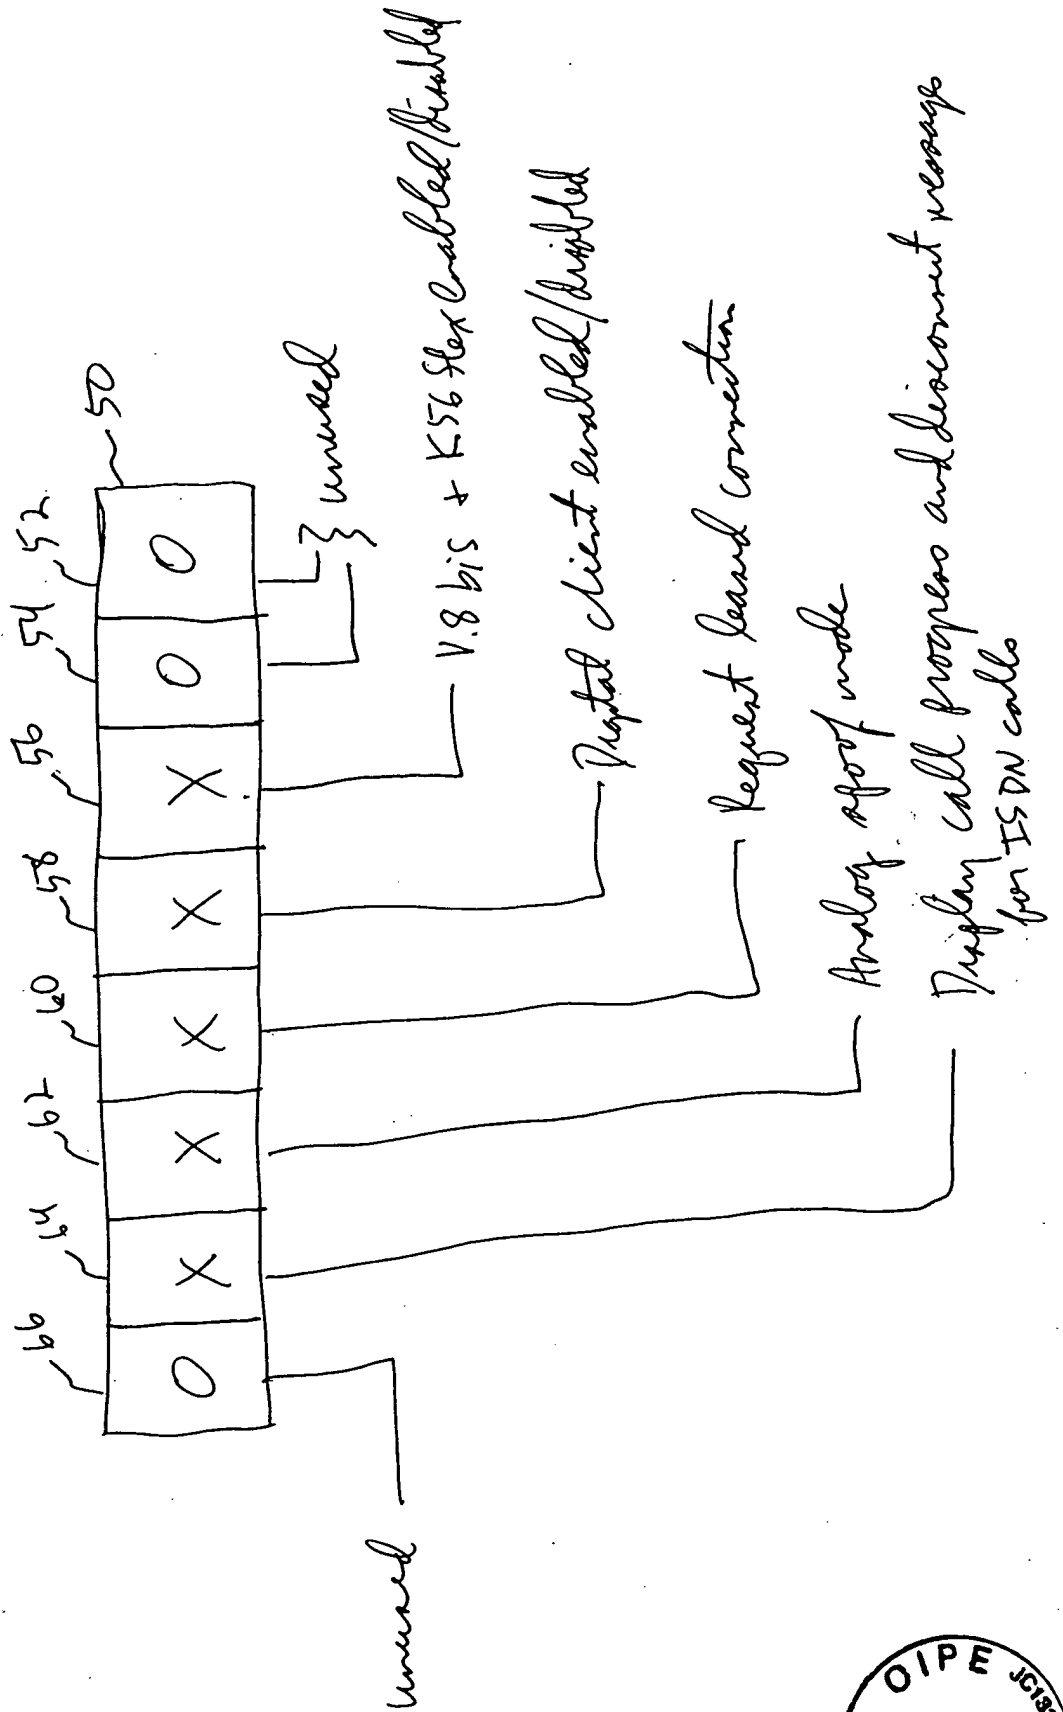 66 64 62 60 58 56 54 52
50
0 X X X X X 0 0
unused
unused
V.8 bis + K56 flex enabled/disabled
Digital client enabled/disabled
Request leased connection
Analog spoof mode
Display call progress and disconnect messages
for ISDN calls
OIPE